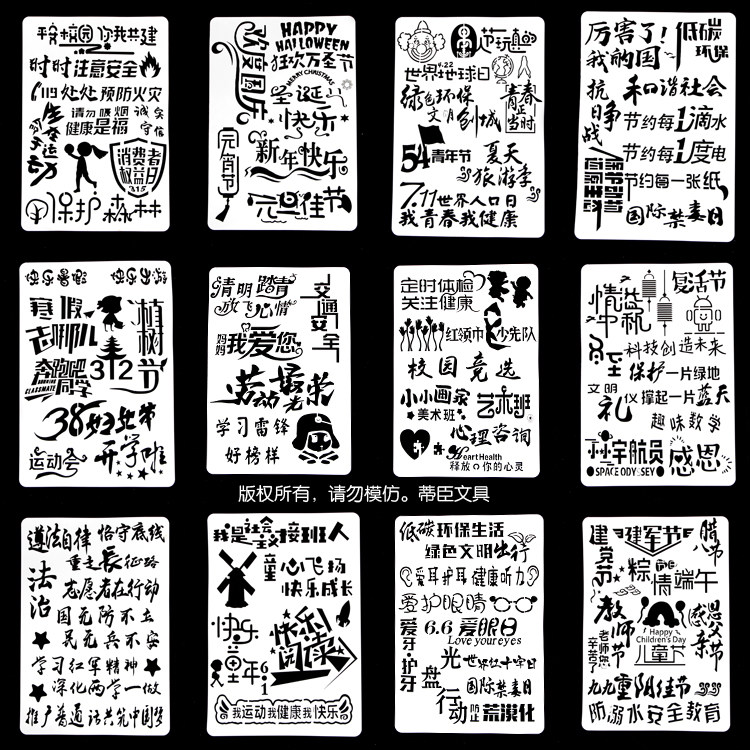 平安校园 你我共建
时时注意安全
119处处预防火灾
请勿吸烟 诚实
健康是福 守信
生命在运动
消费者
权益日
3.15
保护森林
欢度国庆
HAPPY
HALLOWEEN
狂欢万圣节
MERRY CHRISTMAS
圣诞
快乐
元宵节
新年快乐
元旦佳节
节玩真的
4.22
世界地球日
绿色环保
文明创城
青春
正当时
54青年节
夏天
旅游季
7.11世界人口日
我青春我健康
厉害了!
我的国
低碳
环保
抗日争战
和谐社会
节约每1滴水
节约每1度电
节约每一张纸
保护动物
国际禁毒日
快乐暑假 快乐出游
寒假
去哪儿
植树节
312
奔跑吧
同学
RUNNING
CLASSMATE
38妇女节
运动会
开学啦
清明踏青
放飞心情
交通安全
妈妈
我爱您
劳动最光荣
学习雷锋
好榜样
定时体检
关注健康
红领巾 少先队
校园竞选
小小画家
美术班
艺术班
心理咨询
Heart Health
释放你的心灵
复活节
情溢中秋
科技创造未来
保护一片绿地
文明礼仪
撑起一片蓝天
趣味数学
宇航员
SPACE ODYSSEY
感恩
版权所有，请勿模仿。蒂臣文具
遵法自律 恪守底线
重走长征路
法治
志愿者在行动
国无防不立
民无兵不安
学习红军精神
深化两学一做
推广普通话共筑中国梦
我是社会主义接班人
童心飞扬
快乐成长
快乐
童年
6.1
快乐阅读
我运动我健康我快乐
低碳环保生活
绿色文明出行
爱耳护耳 健康听力
爱护眼睛
爱牙·护牙
6.6爱眼日
Love your eyes
光盘行动
世界红十字日
国际禁毒日
防止荒漠化
建党节
建军节
腊八节
粽情端午
教师节
老师您辛苦了
Happy
Children's Day
儿童节
感恩父亲节
九九重阳佳节
防溺水安全教育